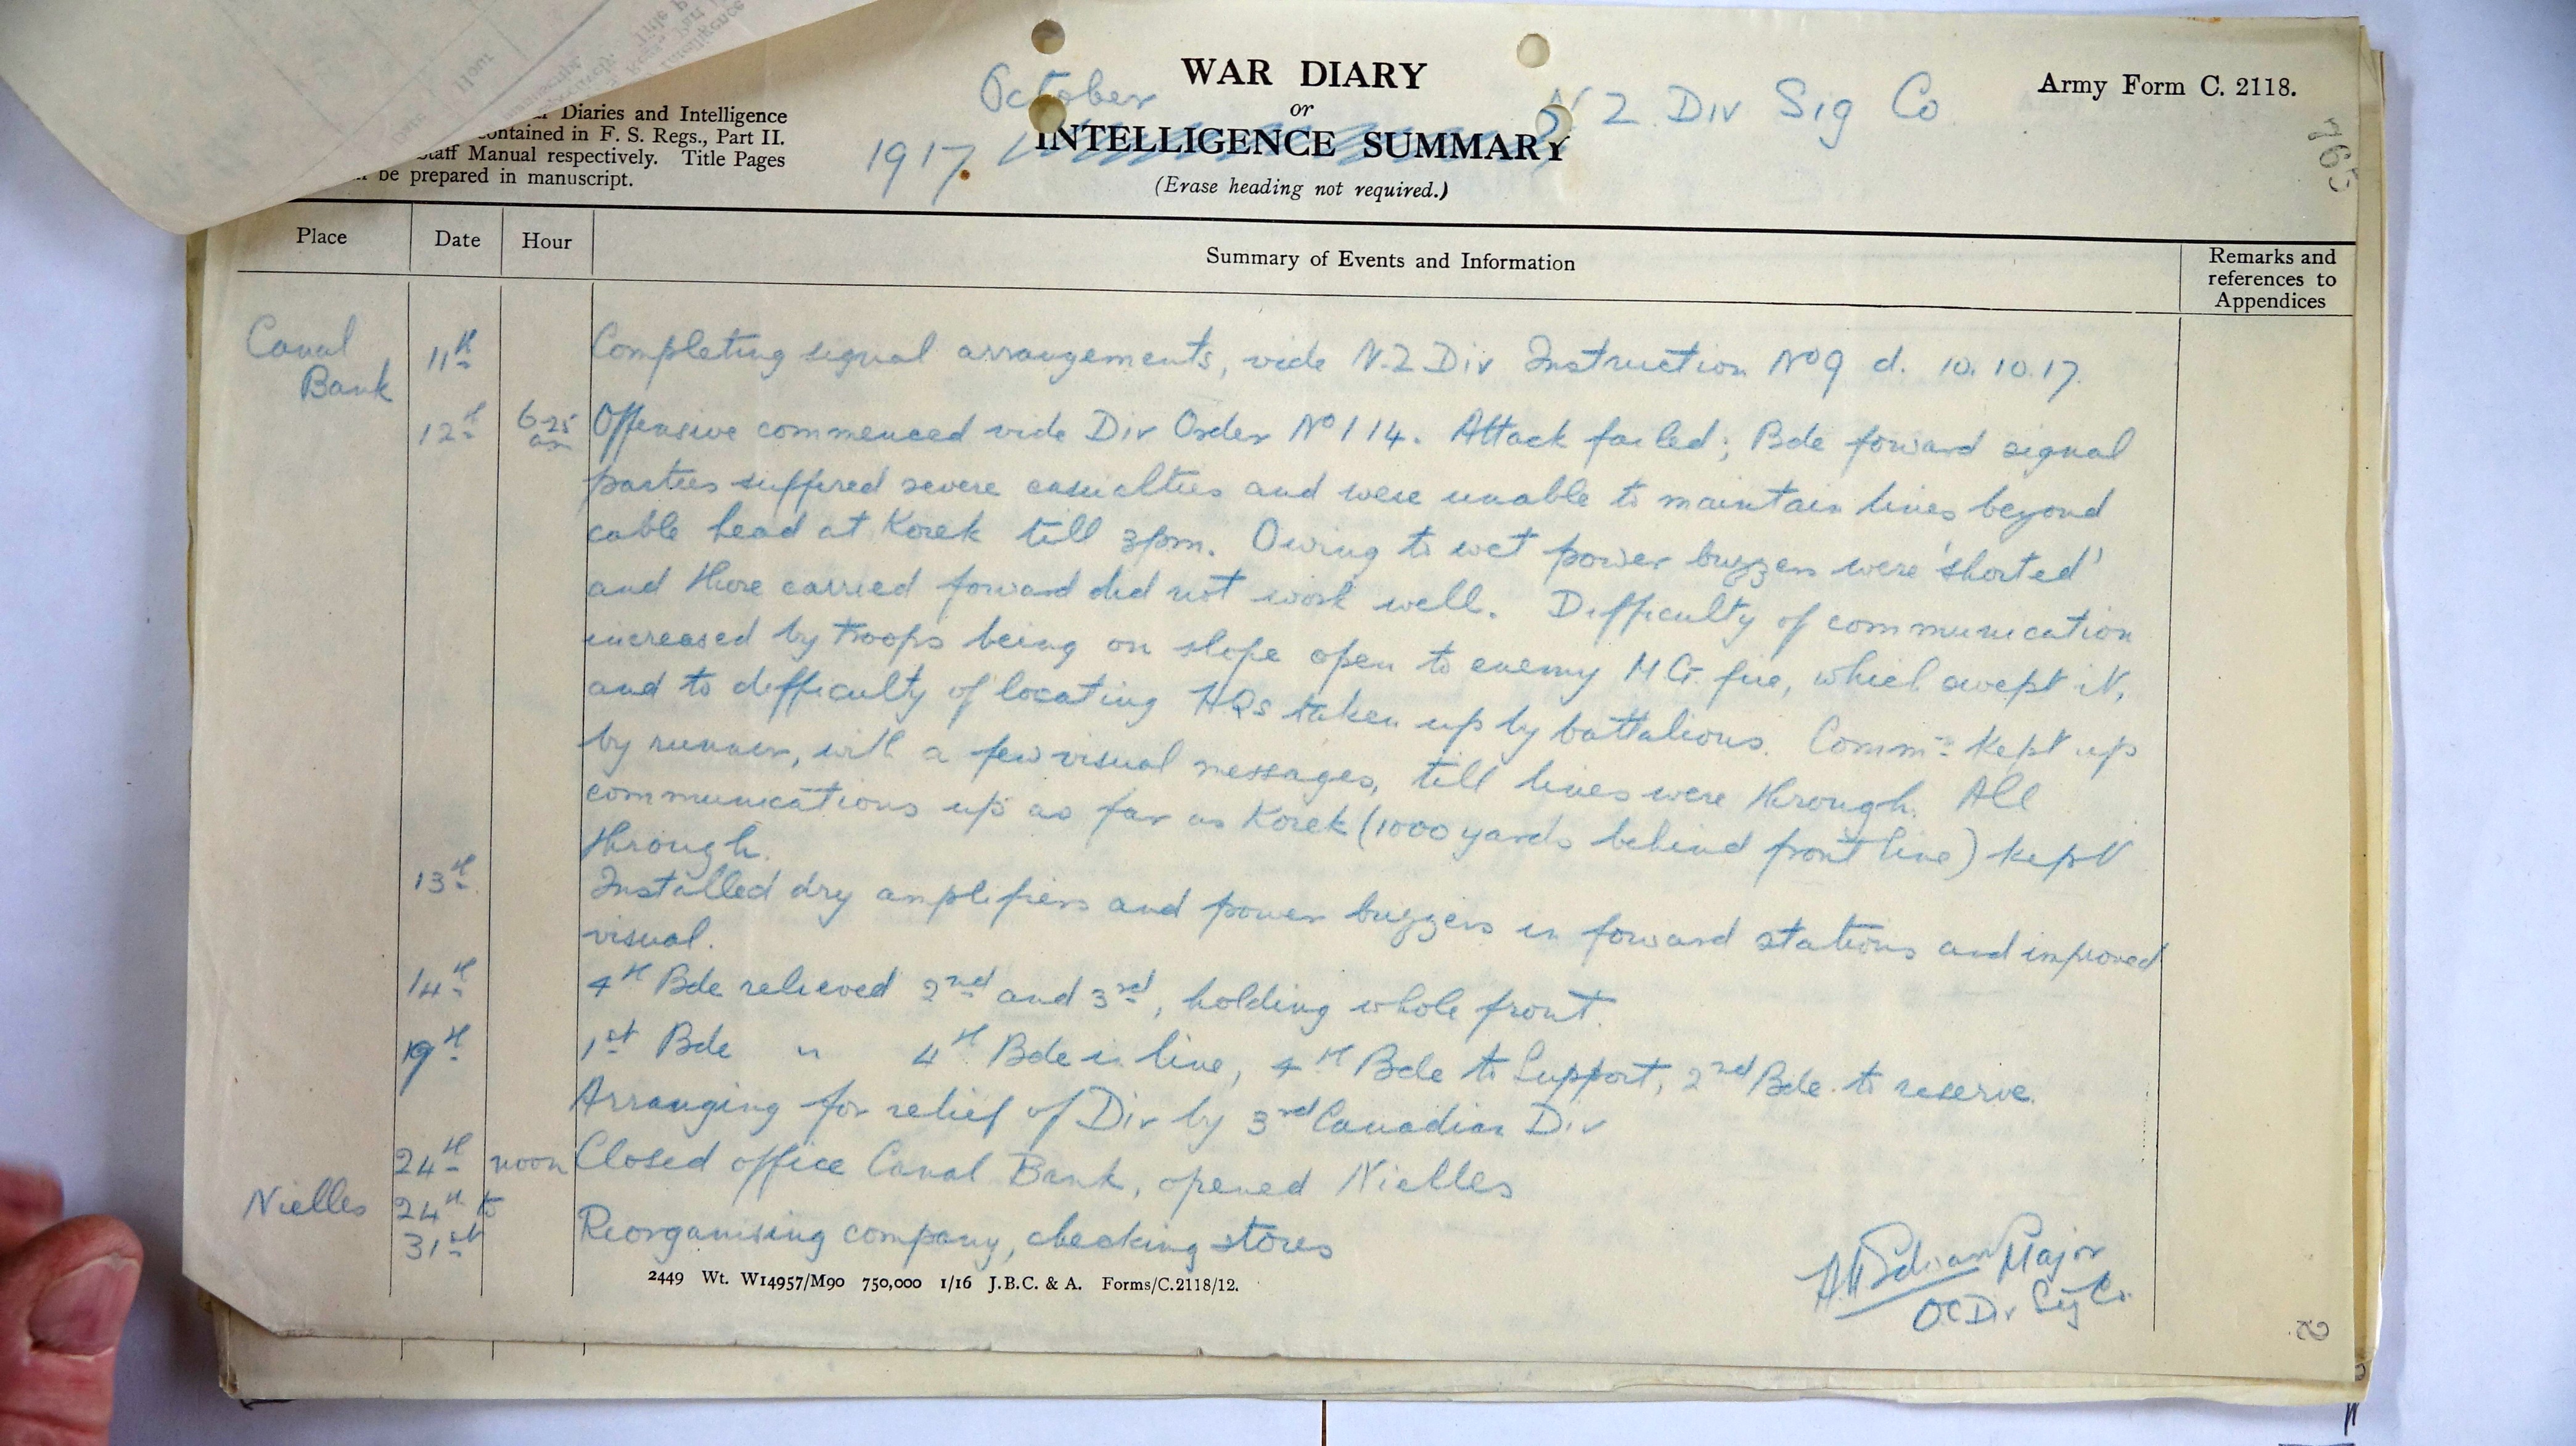 WAR DIARY
or
INTELLIGENCE SUMMARY
(Erase heading not required.)
October
1917.
N Z Div Sig Co
Army Form C. 2118.
765
Diaries and Intelligence
contained in F. S. Regs., Part II.
Staff Manual respectively. Title Pages
be prepared in manuscript.
Place Date Hour Summary of Events and Information Remarks and references to Appendices
Canal Bank 11th Completing signal arrangements, vide N.Z Div Instruction No 9 d. 10.10.17.
12th 6.25 am Offensive commenced vide Div Order No 114. Attack failed; Bde forward signal
parties suffered severe casualties and were unable to maintain lines beyond
cable head at Korek till 3pm. Owing to wet power buzzers were 'shorted'
and those carried forward did not work well. Difficulty of communication
increased by troops being on slope open to enemy M.G. fire, which swept it,
and to difficulty of locating HQs taken up by battalions. Commn kept up
by runner, with a few visual messages, till lines were through. All
communications up as far as Korek (1000 yards behind front line) kept
through.
13th Installed dry amplifiers and power buzzers in forward stations and improved
visual.
14th 4th Bde relieved 2nd and 3rd, holding whole front.
19th 1st Bde " 4th Bde in line, 4th Bde to Support, 2nd Bde to reserve.
Arranging for relief of Div by 3rd Canadian Div
24th noon Closed office Canal Bank, opened Nielles
Nielles 24th to 31st Reorganising company, checking stores
Major
OC Div Sig Co.
2449 Wt. W14957/M90 750,000 1/16 J.B.C. & A. Forms/C.2118/12.
2